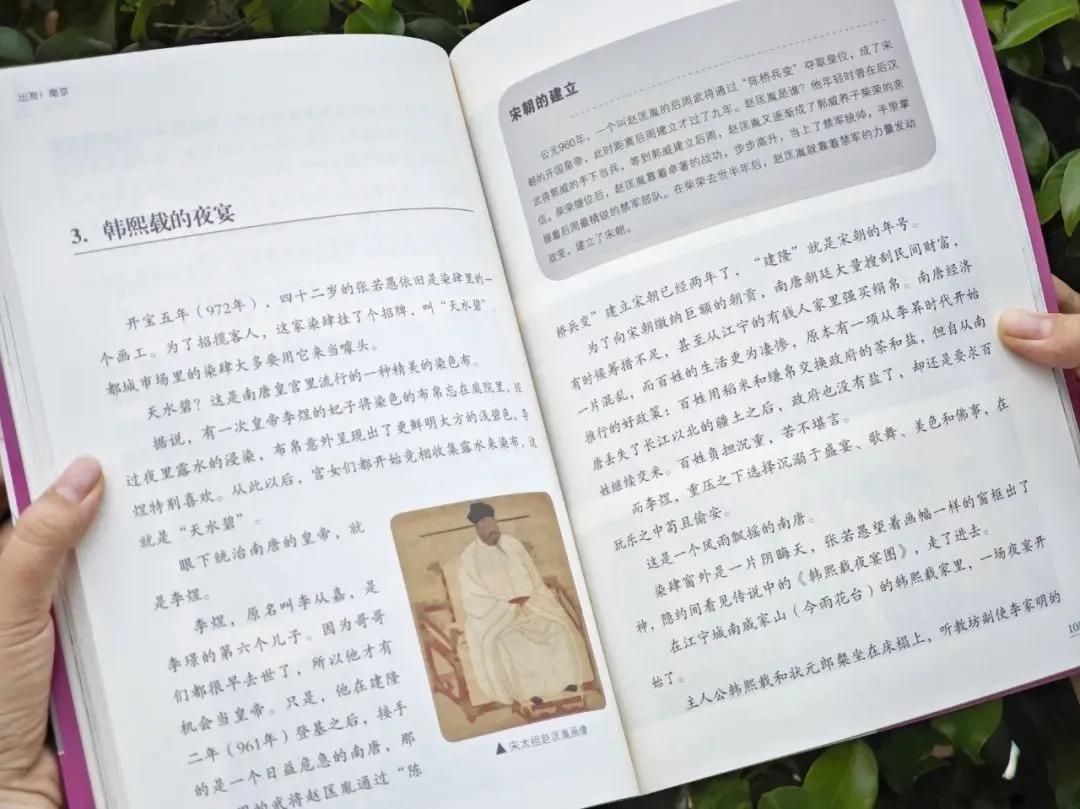 出发！南京
3. 韩熙载的夜宴
开宝五年（972年），四十二岁的张若愚依旧是染肆里的一
个画工。为了招揽客人，这家染肆挂了个招牌，叫“天水碧”。
都城市场里的染肆大多要用它来当噱头。
天水碧？这是南唐皇宫里流行的一种精美的染色布。
据说，有一次皇帝李煜的妃子将染色的布帛忘在庭院里，经
过夜里露水的浸染，布帛意外呈现出了更鲜明大方的浅碧色，李
煜特别喜欢。从此以后，宫女们都开始竞相收集露水来染布，这
就是“天水碧”。
眼下统治南唐的皇帝，就
是李煜。
李煜，原名叫李从嘉，是
李璟的第六个儿子。因为哥哥
们都很早去世了，所以他才有
机会当皇帝。只是，他在建隆
二年（961年）登基之后，接手
的是一个日益危急的南唐，那
的武将赵匡胤通过“陈
▲宋太祖赵匡胤画像
宋朝的建立
公元960年，一个叫赵匡胤的后周武将通过“陈桥兵变”夺取皇位，成了宋
朝的开国皇帝，此时距离后周建立才过了九年。赵匡胤是谁？他年轻时曾在后汉
武将郭威的手下当兵，等到郭威建立后周，赵匡胤又逐渐成了郭威养子柴荣的亲
信。柴荣继位后，赵匡胤靠着卓著的战功，步步高升，当上了禁军统帅，手里掌
握着后周最精锐的禁军部队。在柴荣去世半年后，赵匡胤就靠着禁军的力量发动
政变，建立了宋朝。
桥兵变”建立宋朝已经两年了，“建隆”就是宋朝的年号。
为了向宋朝缴纳巨额的朝贡，南唐朝廷大量搜刮民间财富，
有时候筹措不足，甚至从江宁的有钱人家里强买绢帛。南唐经济
一片混乱，而百姓的生活更为凄惨，原本有一项从李昪时代开始
推行的好政策：百姓用稻米和缣帛交换政府的茶和盐，但自从南
唐丢失了长江以北的疆土之后，政府也没有盐了，却还是要求百
姓继续交米。百姓负担沉重，苦不堪言。
而李煜，重压之下选择沉溺于盛宴、歌舞、美色和佛事，在
玩乐之中苟且偷安。
这是一个风雨飘摇的南唐。
染肆窗外是一片阴晦天，张若愚望着画幅一样的窗框出了
神，隐约间看见传说中的《韩熙载夜宴图》，走了进去。
在江宁城南戚家山（今雨花台）的韩熙载家里，一场夜宴开
始了。
主人公韩熙载和状元郎粲坐在床榻上，听教坊副使李家明的